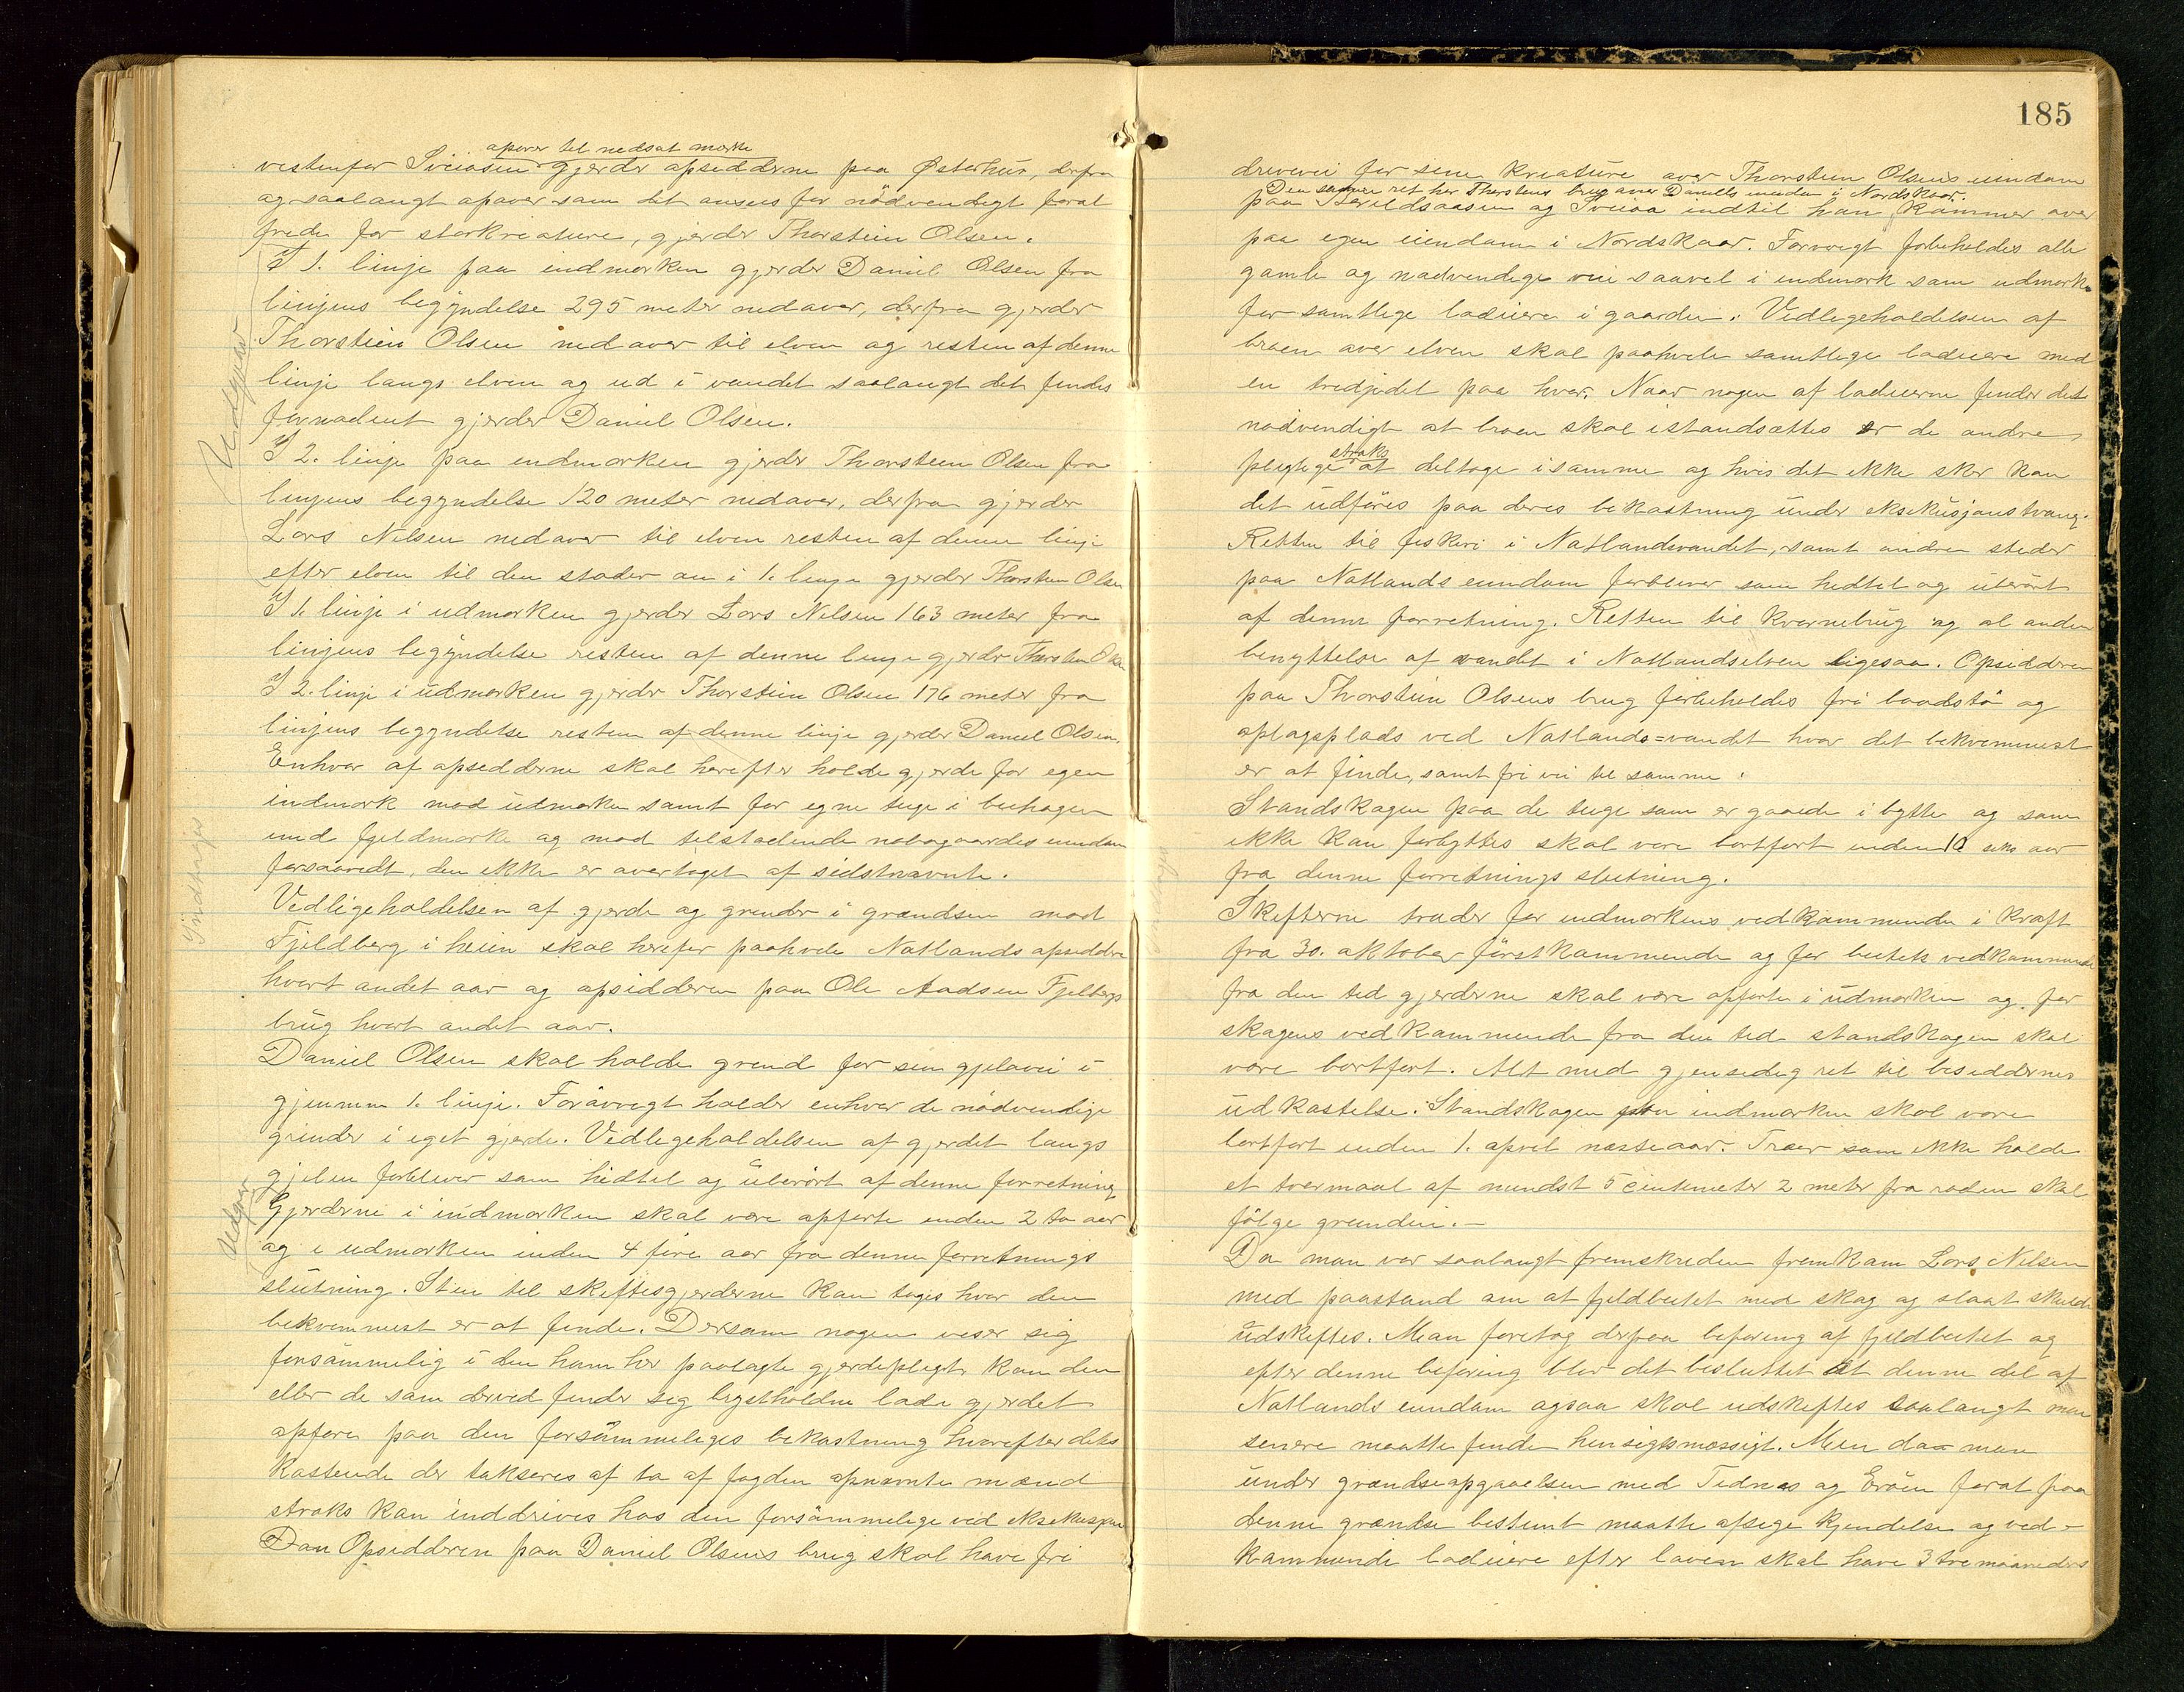 opover til nedsat merke
vestenfor Sveiaasen gjerder opsedderne paa Østerhus, derfra
og saalangt opover som det ansees for nödvendigt forat
frede for storkreature, gjerder Thorstein Olsen.
I 1. linje paa indmarken gjerder Daniel Olsen fra
linjens begÿndelse 295 meter nedover, derfra gjerder
Thorstein Olsen nedover til elven og resten af denne
linje langs elven og ud i vandet saalangt det findes
fornødent gjerder Daniel Olsen.
I 2. linje paa indmarken gjerder Thorstein Olsen fra
linjens begyndelse 120 meter nedover, derfra gjerder
Lars Nilsen nedover til elven resten af denne linje
efter elven til den støder an i 1. linje gjerder Thorstein Olsen
I 1. linje i udmarken gjerder Lars Nilsen 163 meter fra
linjens begÿndelse resten af denne linje gjerder Thorstein Olsen
I 2. linje i üdmarken gjerder Thorstein Olsen 176 meter fra
linjens begyndelse resten af denne linje gjerder Daniel Olsen.
Enhver af opsedderne skal herefter holde gjerde for egen
indmark mod üdmarken samt for egne teige i buhagen
mod fjeldmarke og mod tilstødende nabogaardes eiendom
forsaavidt, den ikke er overtaget af sidstnævnte.
Vedligeholdelsen af gjerde og grender i grændsen mod
Fjeldberg i heien skal herefter paahvile Natlands opsiddere
hvert andet aar og opsidderen paa Ole Aadsen Fjelbergs
brüg hvert andet aar.
Daniel Olsen skal holde grend for sin gjelavei i
gjennem 1. linje. Forövrigt holder enhver de nödvendige
grinder i eget gjerde. Vedligeholdelsen af gjerdet langs
gjelen forbliver som hidtil og überört af denne forretning
Gjerderne i indmarken skal være opførte inden 2 to aar
og i udmarken inden 4 fire aar fra denne forretnings
slütning. Sten til skiftesgjerderne kan tages hvor den
bekvemmest er at finde. Dersom nogen viser sig
forsömmelig i den ham her paalagte gjerdepligt kan den
eller de som derved finder sig brøstholden lade gjerdet
opføre paa den forsömmeliges bekostning hvorefter dets
kostende der takseres af to af fogden opnævnte mænd
straks kan inddrives hos den forsömmelige ved eksekusjon
Dan Opsidderen paa Daniel Olsens brug skal have fri
Vedgjerder
Gjerdhages
Vedgjer
185
drivevei for sine kreatüre over Thorstein Olsens eiendom
Den samme ret har Thorsteins brug over Daniels eiendom i Nordskaar.
paa og Sveiaa indtil han kommer over
paa egen eiendom i Nordskaar. Forövrigt forbeholdes alle
gamle og nødvendige veie saavel i indmark som udmark
for samtlige lodeiere i gaarden. Vedligeholdelsen af
broen over elven skal paahvile samtlige lodeiere med
en tredjedel paa hver. Naar nogen af lodeierne finder det
nödvendigt at broen skal istandsættes er de andre
straks
pligtige at deltage i samme og hvis det ikke sker kan
det üdföres paa deres bekostning ünder eksekusjonstvang.
Retten til fiskeri i Natlandsvandet, samt andre steder
paa Natlands eiendom forbliver som hidtil og überört
af denne forretning. Retten til kvernebrüg og al anden
benyttelse af vandet i Natlandselven ligesaa. Opsidderen
paa Thorstein Olsens brug forbeholdes fri baadstö og
oplagsplads ved Natlands=vandet hvor det bekvemmest
er at finde, samt fri vei til samme.
Standskogen paa de teige som er gaaede i bytte og som
ikke kan forbyttes skal være bortført inden 10 aar
fra denne forretnings slutning.
Skifterne træder for indmarkens vedkommende i kraft
fra 30. oktober förstkommende og for beitets vedkommende
fra den tid gjerderne skal være opførte i üdmarken og for
skogens vedkommende fra den tid standskogen skal
være bortført. Alt med gjensidig ret til besiddernes
üdkastelse. Standskogen paa indmarken skal være
bortført inden 1. april næste aar. Træer som ikke holder
et tvermaal af mindst 5 centimeter 2 meter fra roden skal
fölge grunden. –
Da man var saalangt fremskreden fremkom Lars Nilsen
med paastand om at fjeldbeitet med skog og slaat skulde
üdskiftes. Man foretog derpaa befaring af fjeldbeitet og
efter denne befaring blev det besluttet at denne del af
Natlands eiendom ogsaa skal udskiftes saalangt man
senere maatte finde hensigtsmæssigt. Men da man
ünder grændseopgaaelsen med Tednes og Eröen forat faa
denne grændse bestemt maatte afsige kjendelse og ved-
kommende lodeiere efter loven skal have 3 tre maaneders